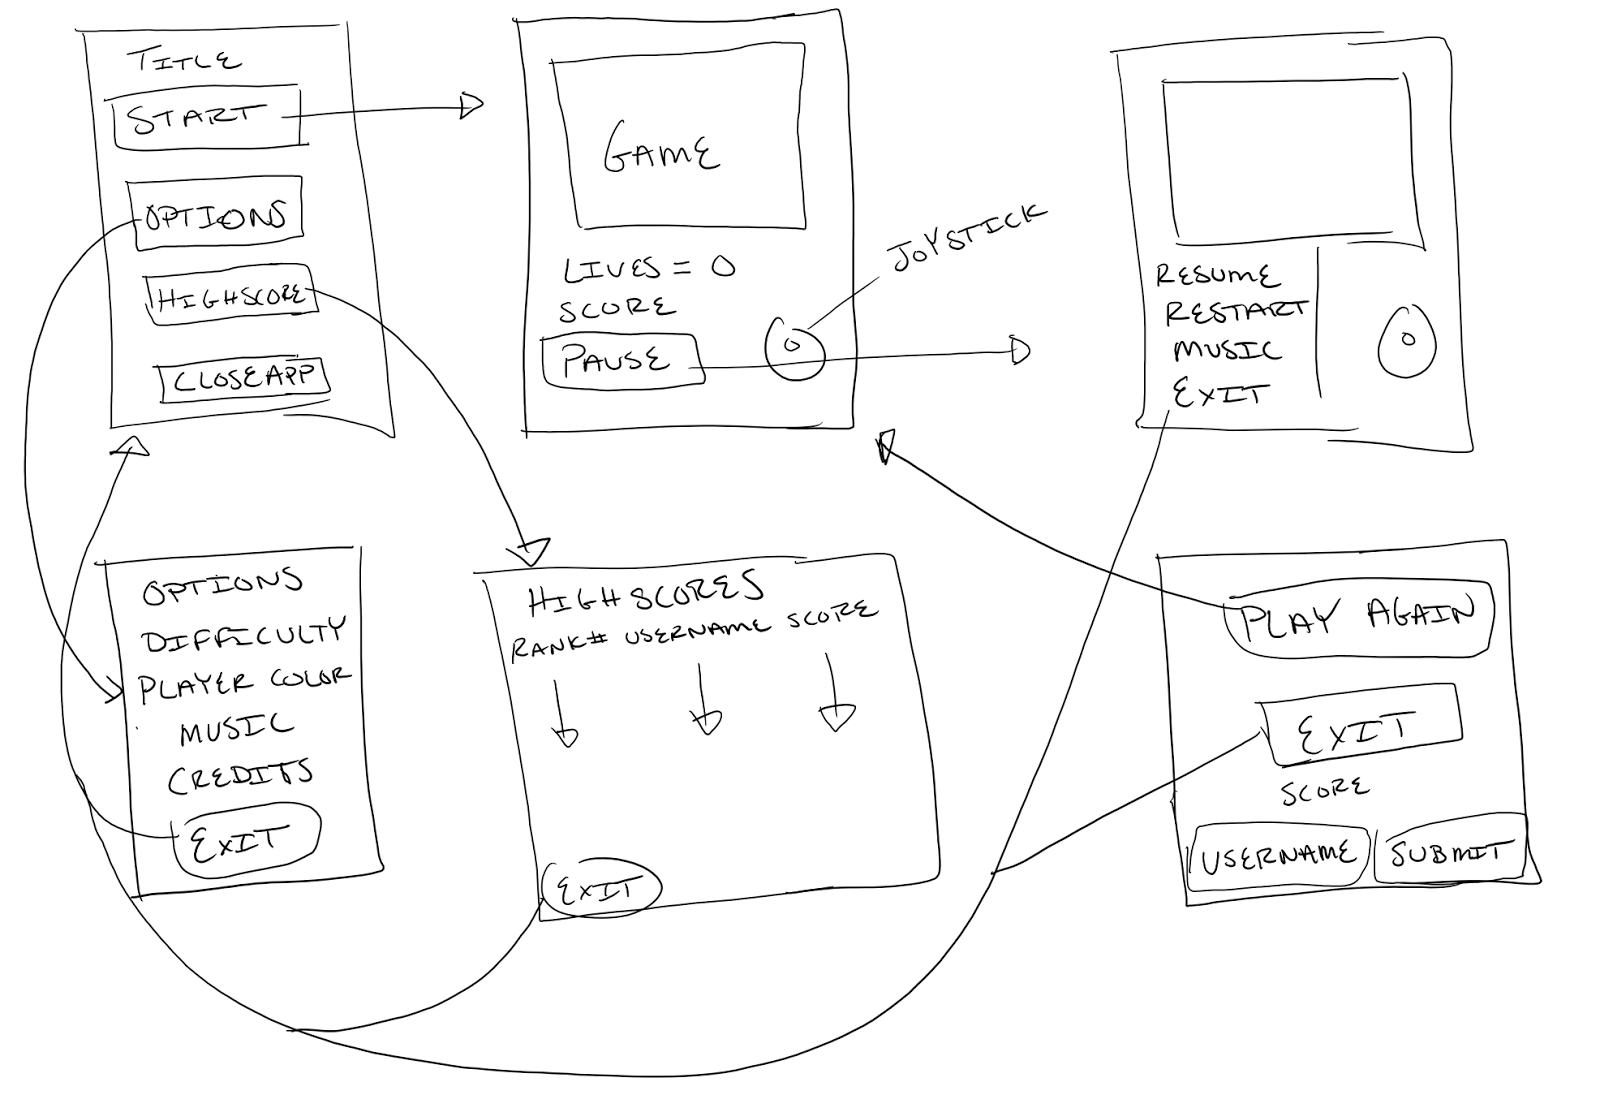 TITLE
START
OPTIONS
HIGHSCORE
CLOSEAPP
GAME
LIVES = 0
SCORE
PAUSE
JOYSTICK
RESUME
RESTART
MUSIC
EXIT
OPTIONS
DIFFICULTY
PLAYER COLOR
MUSIC
CREDITS
EXIT
HIGHSCORES
RANK# USERNAME SCORE
EXIT
PLAY AGAIN
EXIT
SCORE
USERNAME SUBMIT